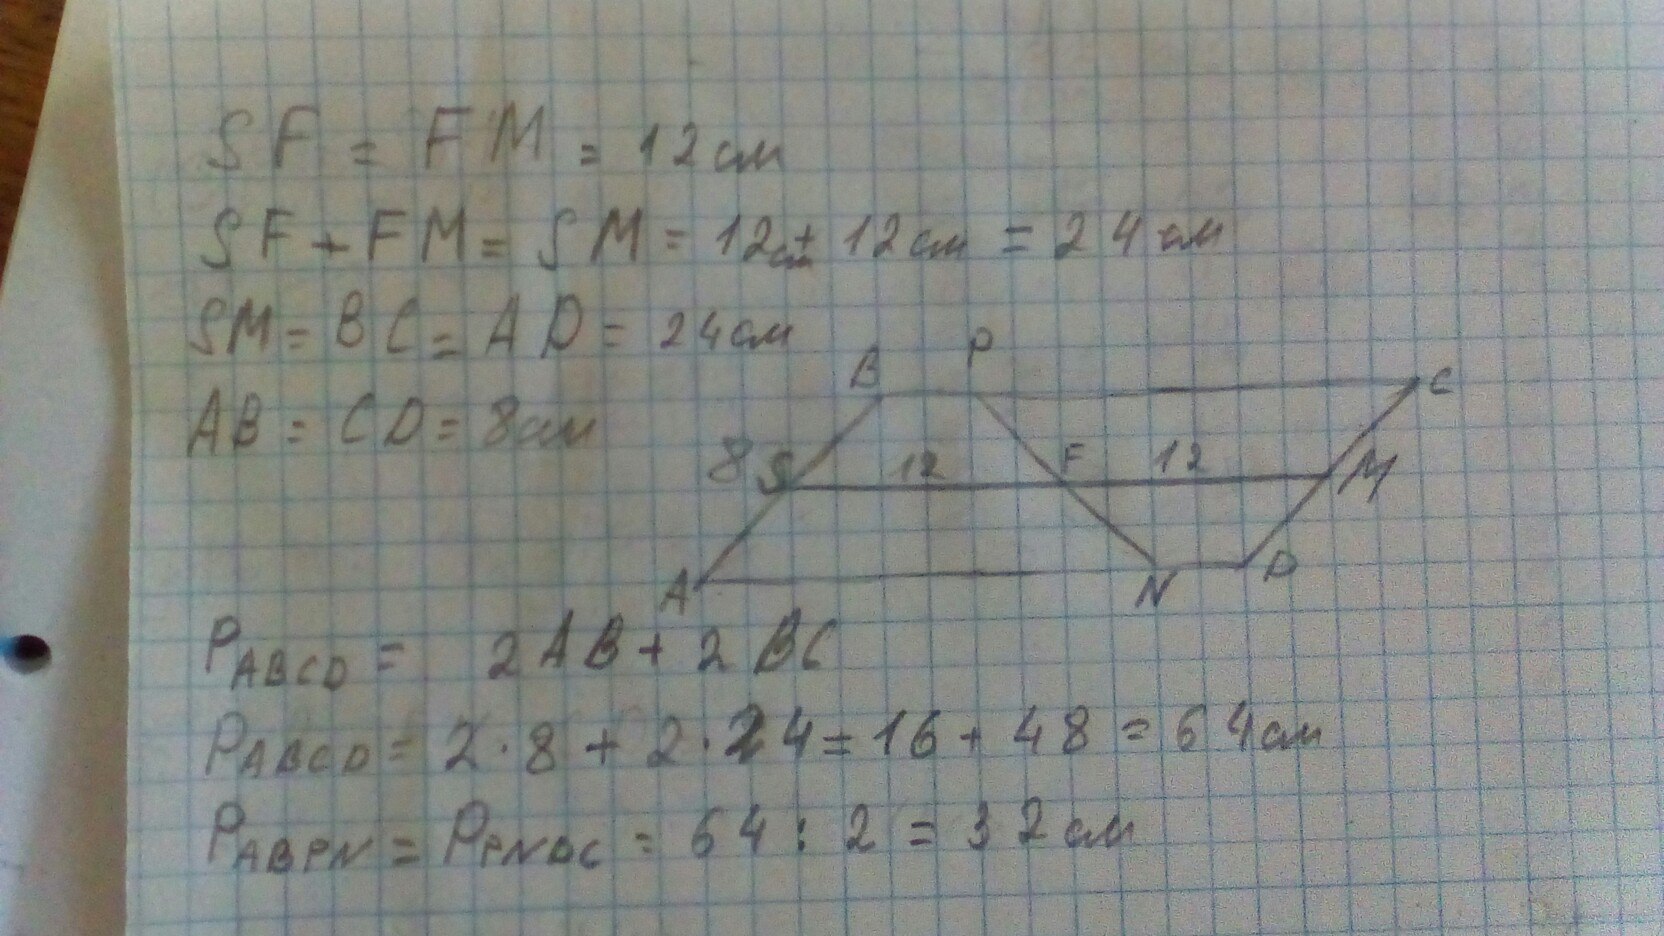 SF = FM = 12 см
SF + FM = SM = 12см + 12 см = 24 см
SM = BC = AD = 24 см
AB = CD = 8 см
B P C
8 S 12 F 12 M
A N D
PABCD = 2AB + 2BC
PABCD = 2·8 + 2·24 = 16 + 48 = 64 см
PABPN = PPNDC = 64 : 2 = 32 см